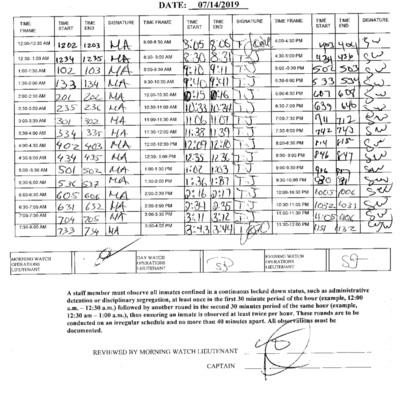 DATE: 07/14/2019
TIME FRAME TIME START TIME END SIGNATURE TIME FRAME TIME START TIME END SIGNATURE TIME FRAME TIME START TIME END SIGNATURE
12:00-12:30 AM 1202 1203 MA 8:00-8:30 AM 8:05 8:06 TJ 4:00-4:30 PM SW
12:30-1:00 AM 1234 1235 MA 8:30-9:00 AM 8:30 8:31 TJ 4:30-5:00 PM SW
1:00-1:30 AM 102 103 MA 9:00-9:30 AM 9:10 9:11 TJ 5:00-5:30 PM 502 503 SW
1:30-2:00 AM 133 134 MA 9:30-10:00 AM 9:40 9:41 TJ 5:30-6:00 PM 533 534 SW
2:00-2:30 AM 201 202 MA 10:15 10:16 TJ 6:00-6:30 PM 607 608 SW
2:30-3:00 AM 235 236 MA 10:30-11:00 AM 10:33 10:34 TJ 6:30-7:00 PM 639 640 SW
3:00-3:30 AM 301 302 MA 11:00-11:30 AM 11:06 11:07 TJ 7:00-7:30 PM 711 712 SW
3:30-4:00 AM 334 335 MA 11:30-12:00 PM 11:38 11:39 TJ 7:30-8:00 PM 742 743 SW
4:00-4:30 AM 402 403 MA 12:00-12:30 PM 12:09 12:10 TJ 8:00-8:30 PM 814 815 SW
4:30-5:00 AM 434 435 MA 12:30-1:00 PM 12:35 12:36 TJ 8:30-9:00 PM 846 847 SW
5:00-5:30 AM 501 502 MA 1:00-1:30 PM 1:02 1:03 TJ 9:00-9:30 PM SW
5:30-6:00 AM 536 537 MA 1:30-2:00 PM 1:36 1:37 TJ 9:30-10:00 PM SW
6:00-6:30 AM 605 606 MA 2:00-2:30 PM 2:16 2:17 TJ 10:00-10:30 PM 1005 1006 SW
6:30-7:00 AM 631 632 MA 2:30-3:00 PM 2:34 2:35 TJ 10:30-11:00 PM 1032 SW
7:00-7:30 AM 704 705 MA 3:00-3:30 PM 3:11 3:12 TJ 11:00-11:30 PM 1105 1106 SW
7:30-8:00 AM 733 734 MA 3:30-4:00 PM 3:43 3:44 TJ 11:30-12:00 PM 1131 1132 SW
MORNING WATCH OPERATIONS LIEUTENANT DAY WATCH OPERATIONS LIEUTENANT EVENING WATCH OPERATIONS LIEUTENANT
A staff member must observe all inmates confined in a continuous locked down status, such as administrative
detention or disciplinary segregation, at least once in the first 30 minute period of the hour (example, 12:00
a.m. – 12:30 a.m.) followed by another round in the second 30 minutes period of the same hour (example,
12:30 am – 1:00 a.m.), thus ensuring an inmate is observed at least twice per hour. These rounds are to be
conducted on an irregular schedule and no more than 40 minutes apart. All observations must be
documented.
REVIEWED BY MORNING WATCH LIEUTENANT
CAPTAIN